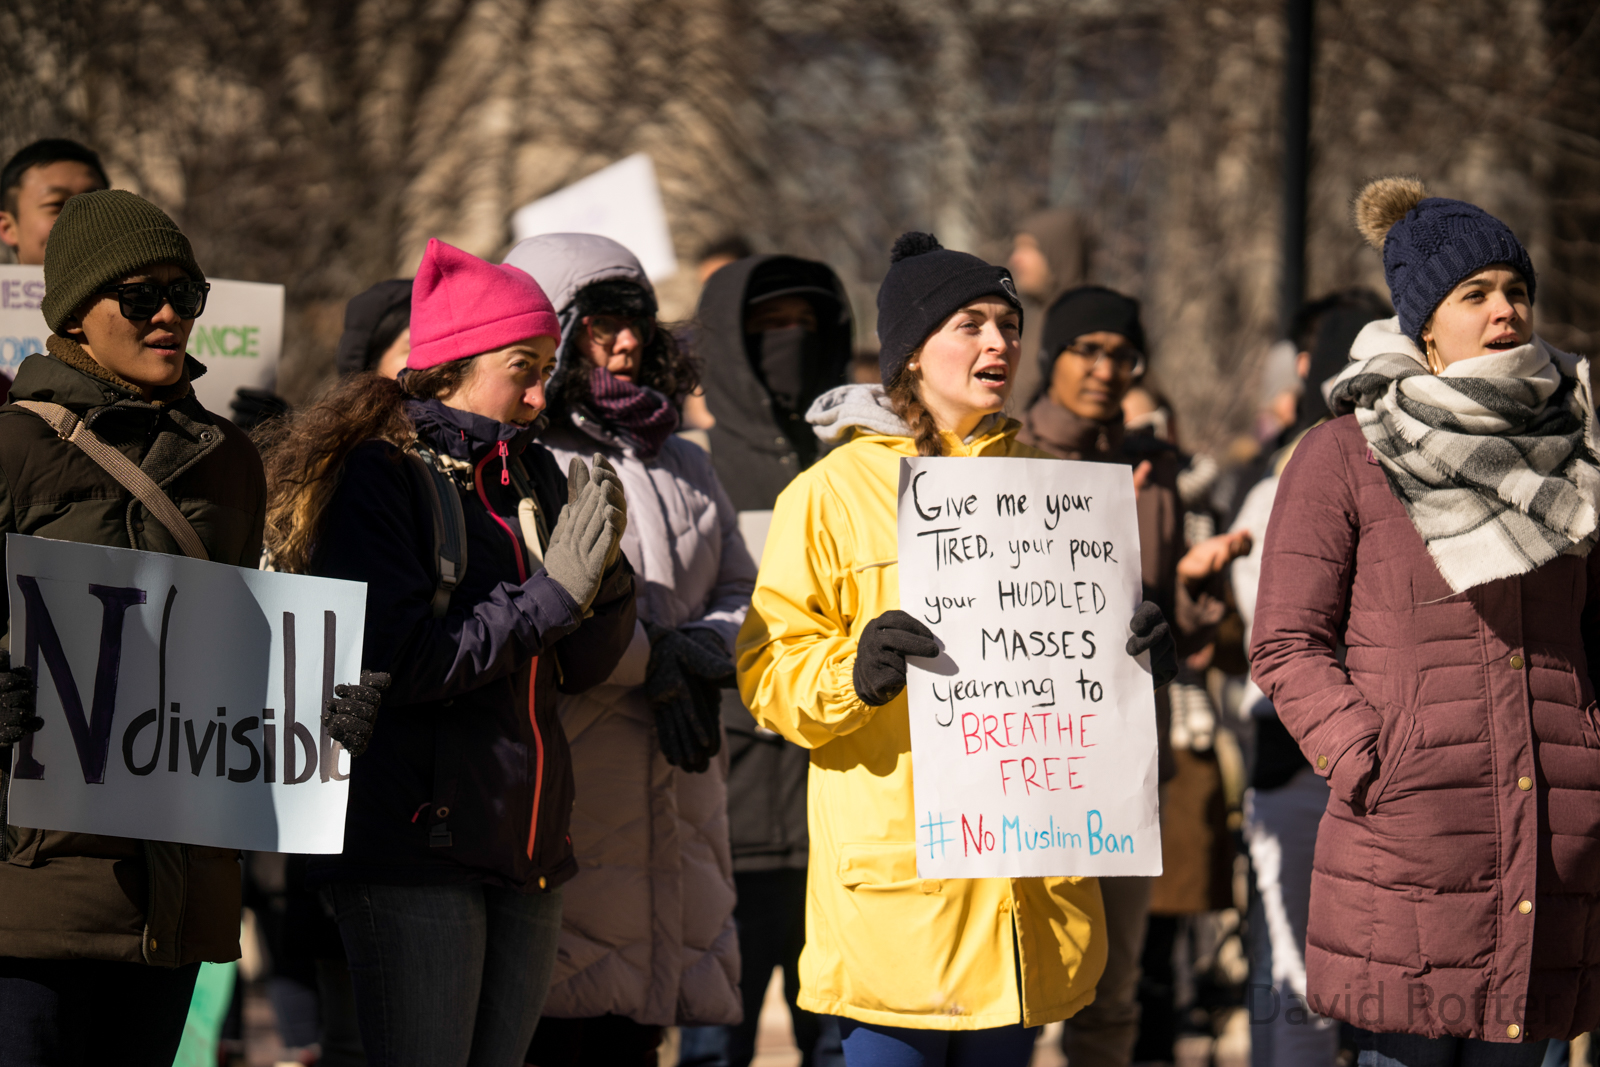 ES
NCE
Ndivisibl
Give me your
TIRED, your POOR
your HUDDLED
MASSES
yearning to
BREATHE
FREE
#NoMuslimBan
David Rotter